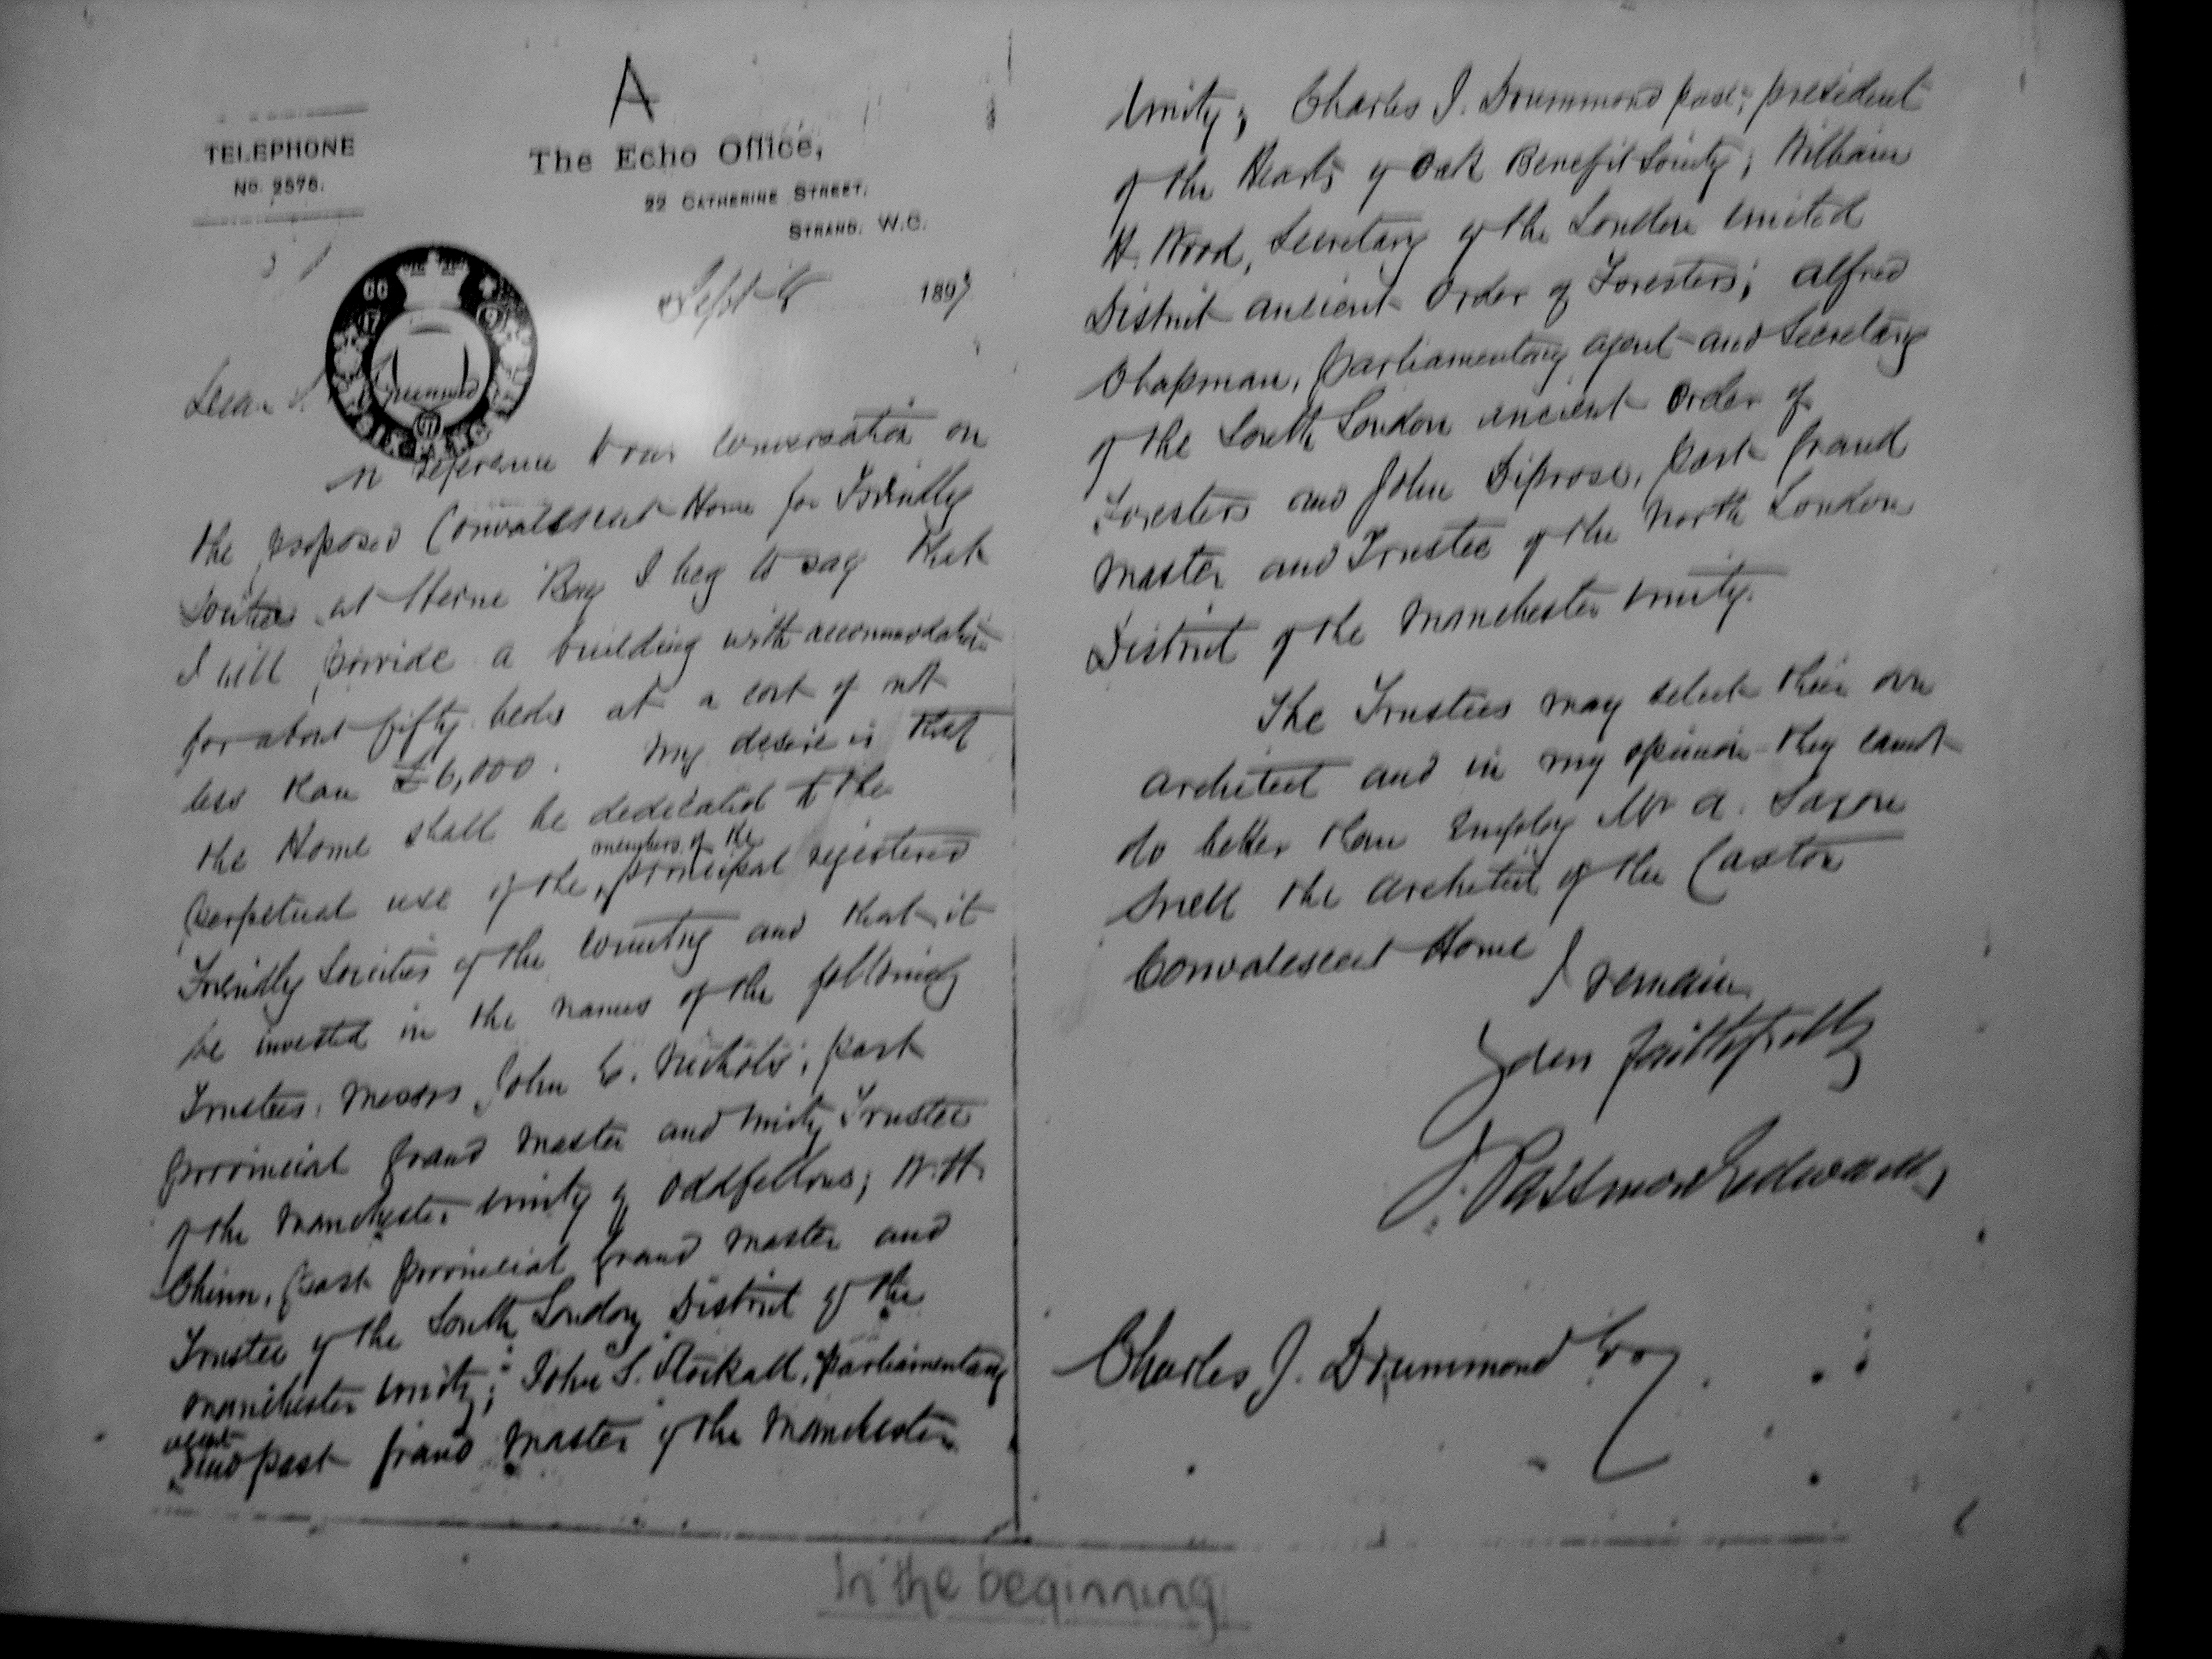 A
TELEPHONE
No. 2575.
The Echo Office,
22 CATHERINE STREET,
STRAND. W.C.
Sept 1897
Dear
In reference to our conversation on
the proposed Convalescent Home for Friendly
Societies at Herne Bay I beg to say that
I will provide a building with accommodation
for about fifty beds at a cost of not
less than £6,000. My desire is that
the Home shall be dedicated to the
members of the
perpetual use of the principal registered
Friendly Societies of the country and that it
be invested in the names of the following
Trustees, Messrs John C. Nichols, past
provincial Grand Master and Unity Trustee
of the Manchester Unity of Oddfellows; W.H.
Chinn, past provincial Grand Master and
Trustee of the South London District of the
Manchester Unity; John S. Stockall, parliamentary
agent
and past Grand Master of the Manchester
Unity; Charles J. Drummond past president
of the Hearts of Oak Benefit Society; William
H. Wood, Secretary of the London United
District Ancient Order of Foresters; Alfred
Chapman, parliamentary agent and Secretary
of the South London Ancient Order of
Foresters and John Diprose, past Grand
Master and Trustee of the North London
District of the Manchester Unity.
The Trustees may select their own
architect and in my opinion they cannot
do better than employ Mr A. Saxon
Snell the architect of the Caxton
Convalescent Home
I remain
Yours faithfully
J. Passmore Edwards
Charles J. Drummond Esq
In the beginning